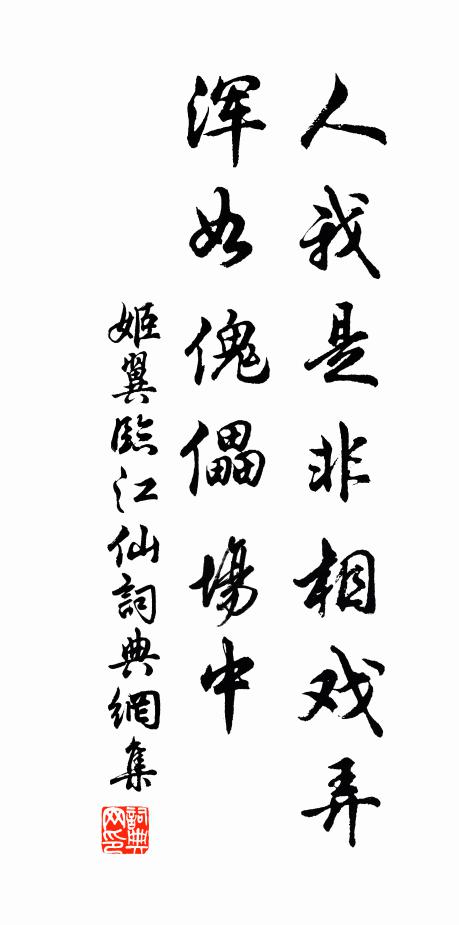 人我是非相戏弄
渾如傀儡場中
姬翼臨江仙詞典網集
詞典网印